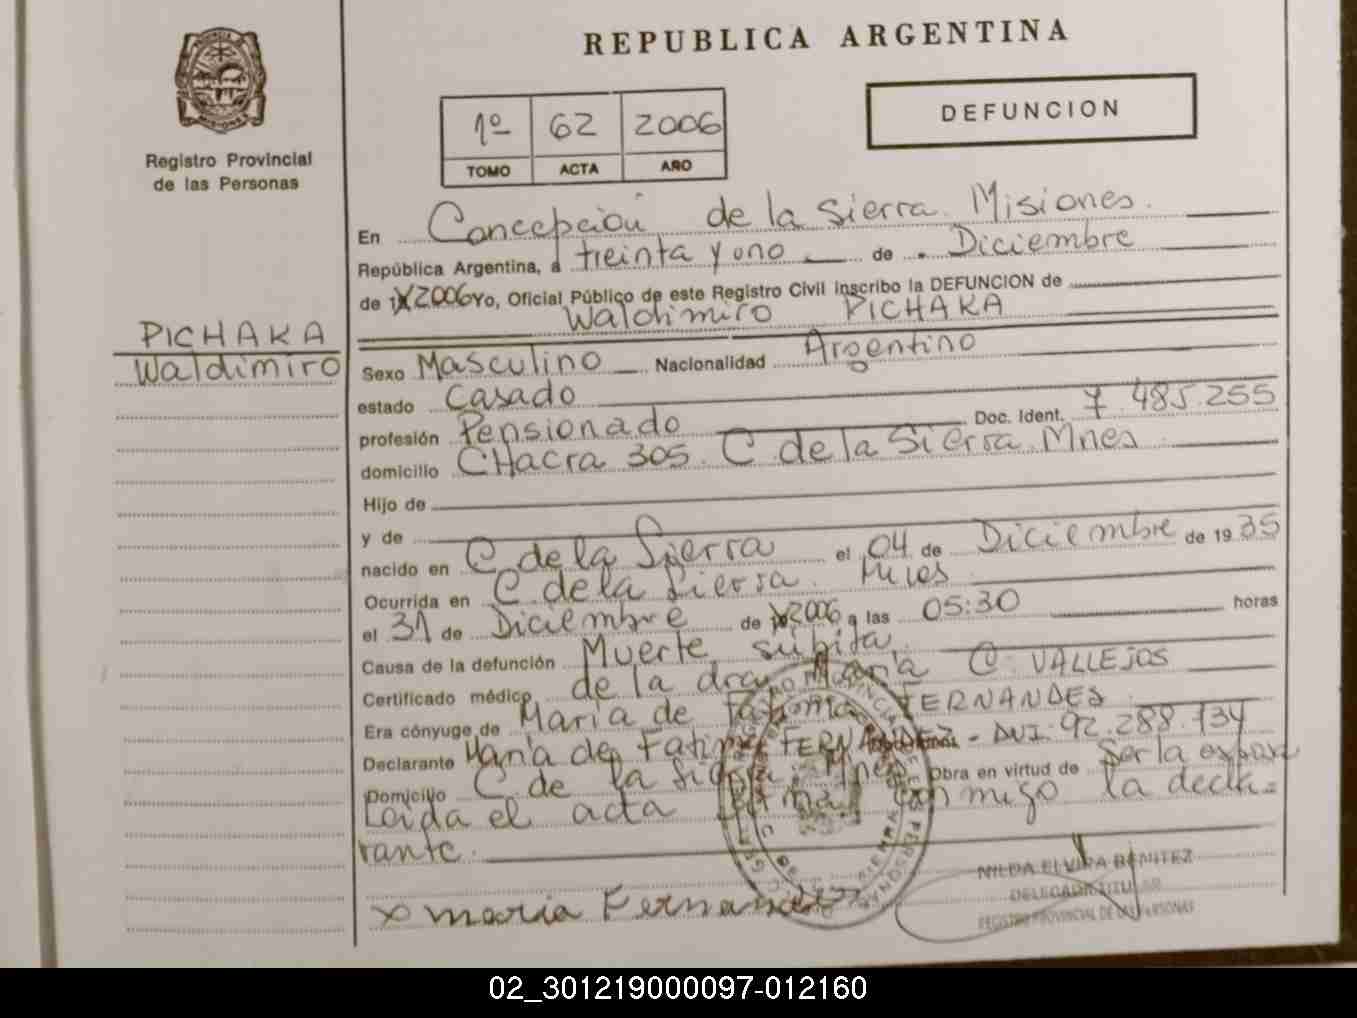 REPUBLICA ARGENTINA
PROVINCIA
MISIONES
Registro Provincial
de las Personas
1º 62 2006
TOMO ACTA AÑO
DEFUNCION
En Concepción de la Sierra. Misiones.
República Argentina, a treinta y uno de Diciembre
de 2006 Yo, Oficial Público de este Registro Civil inscribo la DEFUNCION de
Waldimiro PICHAKA
PICHAKA
Waldimiro
Sexo Masculino Nacionalidad Argentino
estado Casado
profesión Pensionado Doc. Ident. 7.485.255
domicilio CHacra 305. C de la Sierra. Mnes
Hijo de
y de
nacido en C de la Sierra el 04 de Diciembre de 1935
Ocurrida en C de la Sierra. Mnes
el 31 de Diciembre de 2006 a las 05:30 horas
Causa de la defunción Muerte súbita
Certificado médico de la dra. María C. VALLEJOS
Era cónyuge de María de Fatima FERNANDES
Declarante María de Fatima FERNANDEZ - DNI. 92.288.734
Domicilio C de la Sierra. Mnes Obra en virtud de Ser la esposa
Leida el acta firma conmigo la decla=
rante.
x maria Fernandez
NILDA ELVIRA BENITEZ
DELEGADA TITULAR
REGISTRO PROVINCIAL DE LAS PERSONAS
02_301219000097-012160